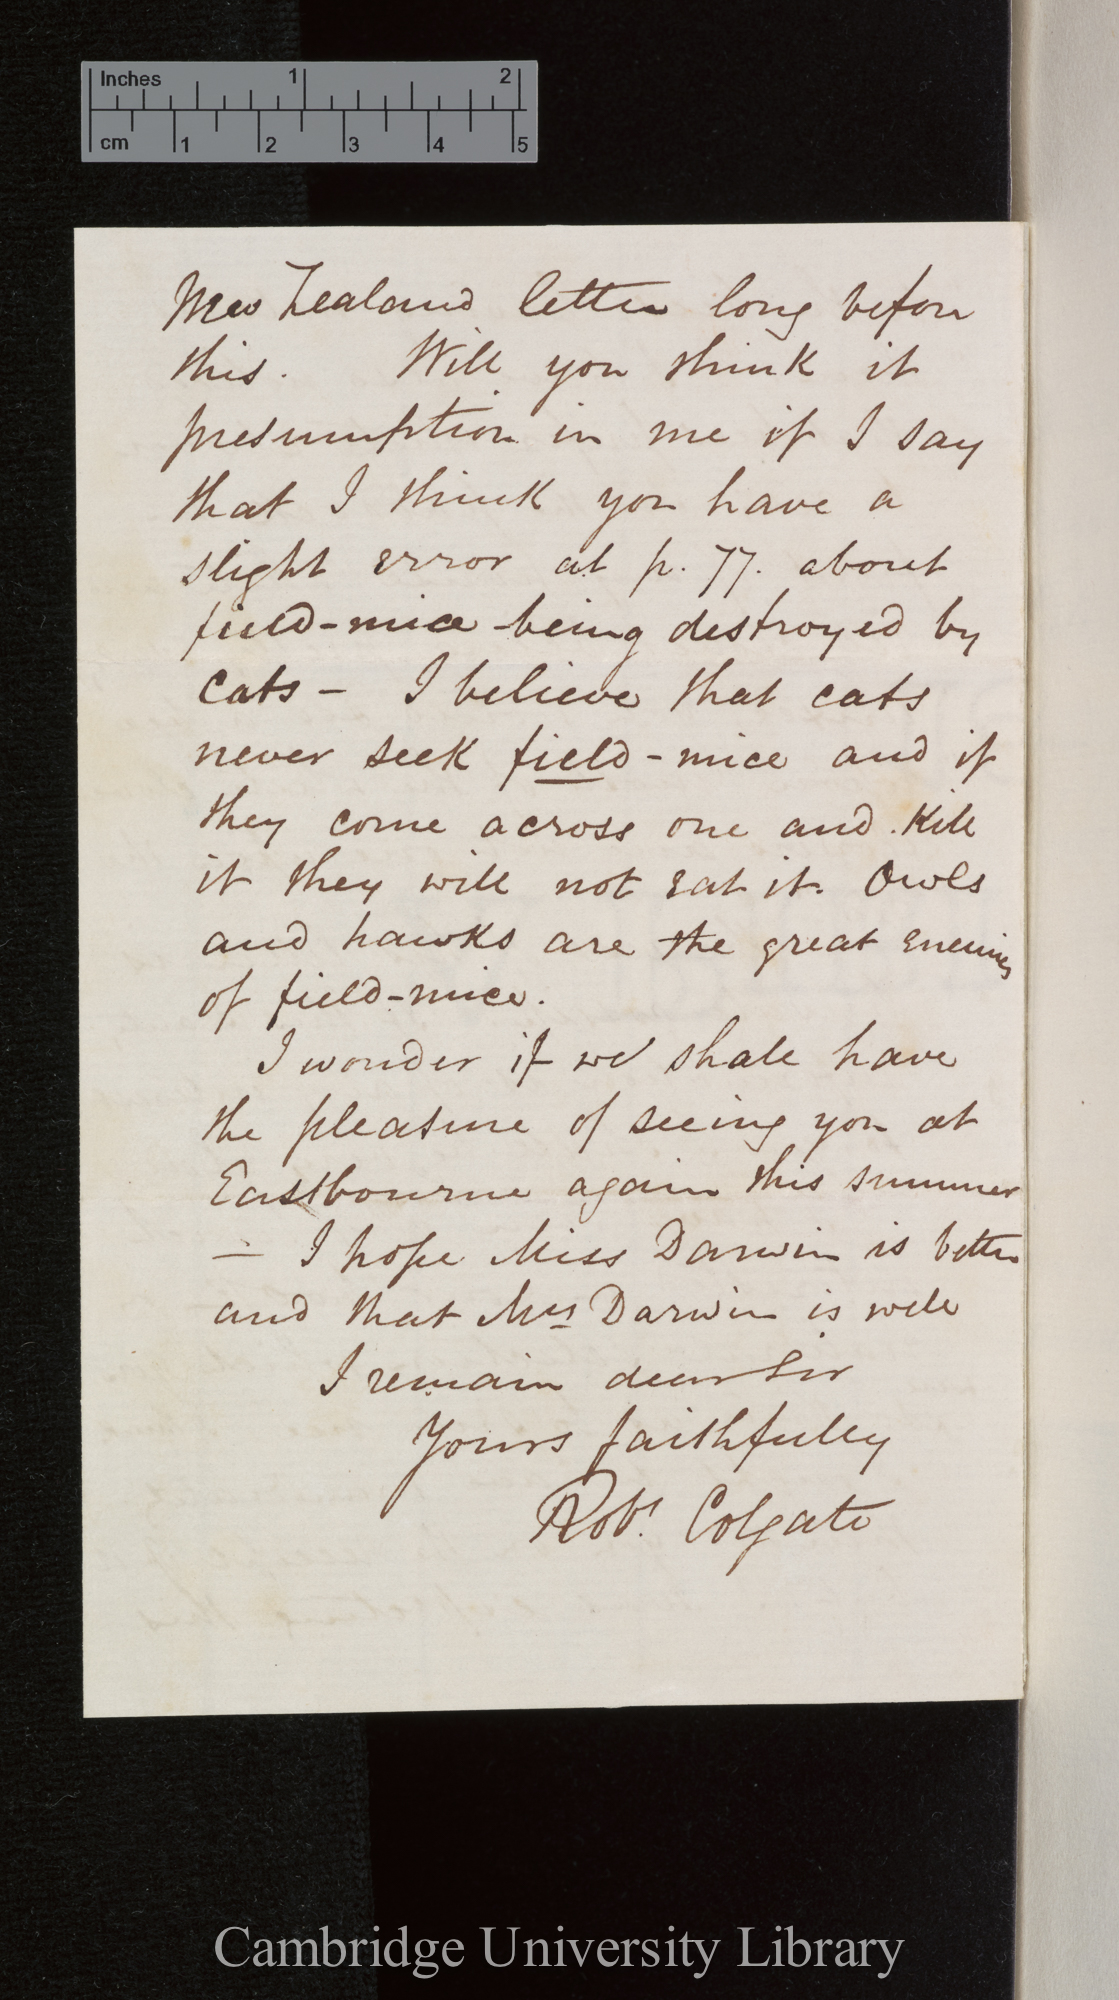 Inches 1 2
cm 1 2 3 4 5
New Zealand letter long before
this. Will you think it
presumption in me if I say
that I think you have a
slight error at p. 77. about
field-mice being destroyed by
cats – I believe that cats
never seek field-mice and if
they come across one and kill
it they will not eat it. Owls
and hawks are the great enemies
of field-mice.
I wonder if we shall have
the pleasure of seeing you at
Eastbourne again this summer
– I hope Miss Darwin is better
and that Mrs Darwin is well
I remain dear Sir
Yours faithfully
Robt. Colgate
Cambridge University Library